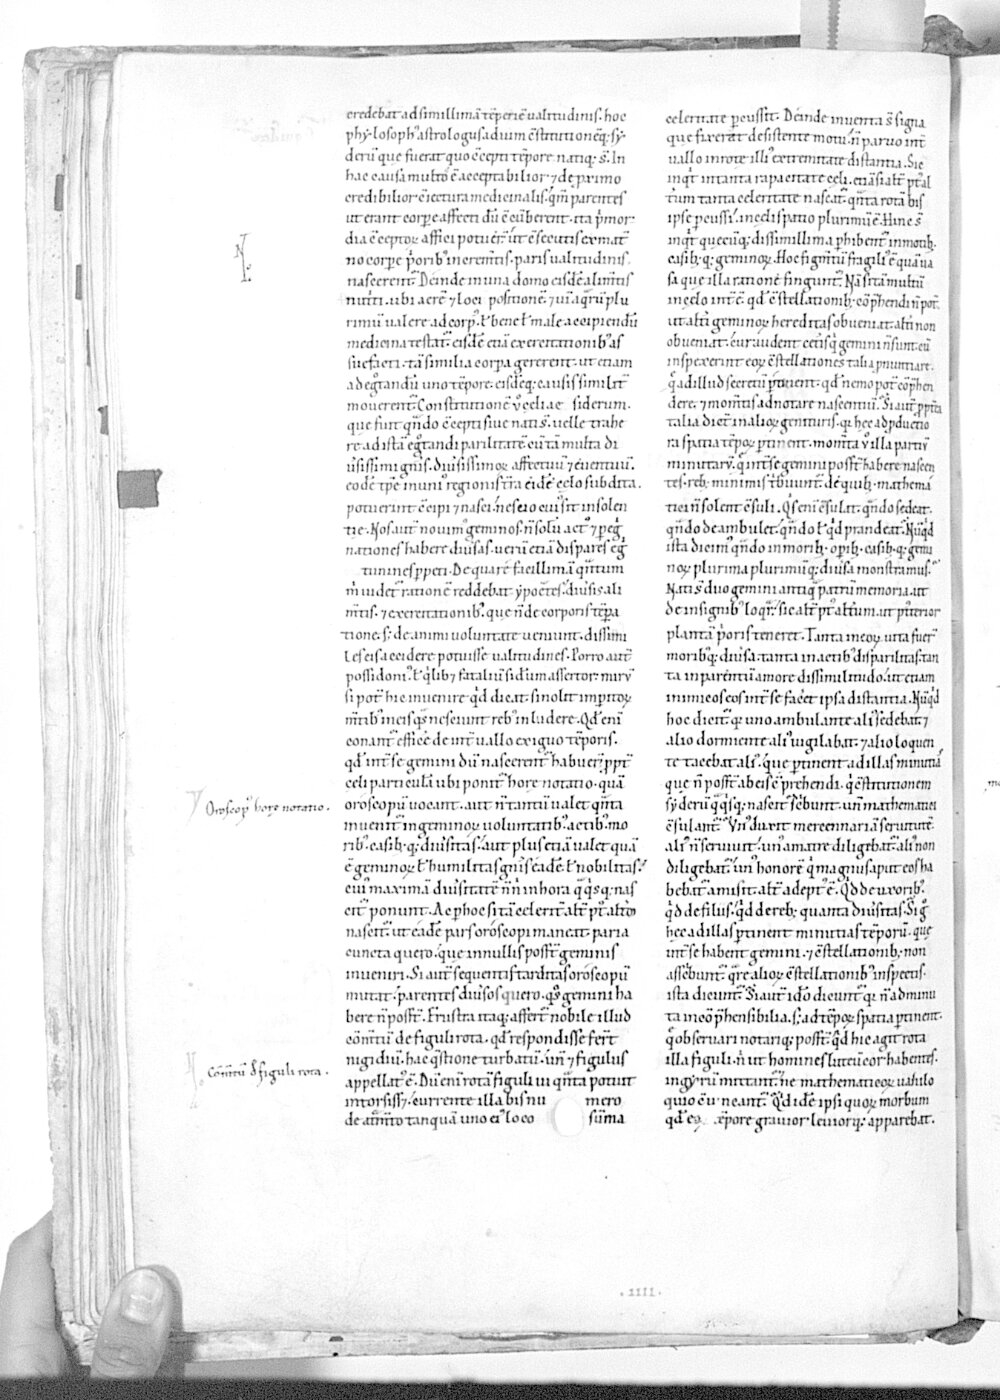 credebat ad simillimā tēperiē ualitudinis. hoc
phylosoph' astrologus aduim cstitutionēq; sy-
derū que fuerat quo cepti tēpore natiq; s̄. In
hac causa multo ē acceptabilior ⁊ de pximo
credibilior ciectura medicinalis. qm̄ parentes
ut erant corpe affecti dū ccūberent. ita pmor-
dia cceptoꝝ affici potuer̄. ut csecutis ex mat̄
no corpe priorib' incremtis. paris ualitudinis
nascerent̄. Deinde in una domo eisdē alimtis
nutriti. ubi aerē ⁊ loci positionē. ⁊ uī aqrū plu
rimū ualere ad corp' ł bene ł male accipiendū
medicina testat̄. eisdē etiā exercitationib' as
suefacti. tā similia corpa gererent. ut etiam
ad egtandū uno tēpore. eisdēq; causis similit̄
mouerent̄. Constitutionē u° celi ac siderum.
que fuit qn̄do ccepti siue nati s̄. uelle trahe
re ad istā egtandi parilitatē. cū tā multa di
u'sissimi gn̄is. diu'sissimoꝝ affectuū ⁊ euentuū.
eodē tpe in uni' regionis t̄ra eidē celo subdita.
potuerint ccipi ⁊ nasci. nescio cui' sit insolen
tie. Nos aut̄ nouim' geminos. n̄ solū act' ⁊ peg
nationes habere diu'sas. uerū etiā dispares eg
tunines ppeti. De qua re facillimā qn̄tum
m̄ uidet̄ rationē reddebat ypocrtes. diu'sis ali
mtis. ⁊ exercitationib'. que n̄ de corporis tēpa
tione. s; de animi uoluntate ueniunt. dissimi
les eis accidere potuisse ualitudines. Porro aut̄
possidoni' ł qlib; fataliū sidrum assertor. mirū
si pot̄ hic inuenire qd dicat. si nolit impitoꝝ
m̄tib' in eis qs nesciunt reb' inludere. Qd eni
conant̄ efficere de int̄uallo exiguo tēporis.
qd int̄ se gemini dū nascerent̄ habuer̄. ppt̄
celi particulā ubi ponit̄ hore notatio. quā
oroscopū uocant. aut n̄ tantū ualet qn̄ta
inuenit̄ in geminoꝝ uoluntatib'. actib'. mo
rib'. casib;q; diu'sitas. aut plus etiā ualet quā
ē geminoꝝ ł humilitas gn̄is eadē. ł nobilitas.
cui' maximā diu'sitatē n̄n in hora qqsq; nas
cit̄ ponunt. Ac p hoc si tā celerit̄ alt̄ pt' alt̄o
nascit̄. ut eadē pars oroscopi maneat. paria
cuncta quero. que in nullis posst geminis
inueniri. Si aut̄ sequentis tarditas oroscopū
mutat. parentes diu'sos quero. qs gemini ha
bere n̄ posst. Frustra itaq; affert̄ nobile illud
com̄tū de figuli rota. qd respondisse fert̄
nigidiū. hac qstione turbatū. un̄ ⁊ figulus
appellat' ē. Dū eni rotā figuli ui qn̄ta potuit
intorsiss;. currente illa bis nu mero
de atram̄to tanquā uno ei' loco sūma
Oroscop' hore notatio.
Com̄tū d' figuli rota.
celeritate pcussit. Deinde inuenta s̄ signa
que fixerat desistente motu. n̄ paruo int̄
uallo in rote illi' extremitate distantia. Sic
inqt in tanta rapacitate celi. etiā si alt̄ pt' al
t̄um tanta celeritate nascat̄. qn̄ta rotā bis
ipse pcussi. in celi spatio plurimū ē. Hinc s̄
inqt quecūq; dissimillima phibent̄ in morib;
casib;q; geminoꝝ. Hoc figm̄tū fragili' ē quā ua
sa que illa ratione fingunt̄. Nā si tā multū
in celo int̄ ē. qd cstellationib; cphendi n̄ pot̄.
ut alt̄i geminoꝝ hereditas obueniat. alt̄i non
obueniat. cur audent cetis q gemini n̄ sunt. cū
inspexerint eoꝝ cstellationes. talia pnuntiare.
q ad illud secretū ptinent. qd nemo pot̄ cphen
dere. ⁊ mom̄tis adnotare nascentiū. Si aut̄ ppt̄ea
talia dict̄ in alioꝝ genituris. q hec ad pductio
ra spatia tēpoꝝ ptinent. mom̄ta u° illa partiū
minutarū. q int̄ se gemini posst habere nascen
tes. reb; minimis t̄buunt̄. de quib; mathema
tici n̄ solent csuli. Qs eni csulat. qn̄do sedeat.
qn̄do deambulet. qn̄do ł qd prandeat. Nūqd
ista dicim'. qn̄do in morib; opib; casib;q; gemi
noꝝ plurima plurimūq; diu'sa monstramus.
Nati s̄ duo gemini antiq patrū memoria. ut
de insignib' loqr. sic alt̄ pt' alt̄um. ut pt'erior
plantā prioris teneret. Tanta in eoꝝ uita fuer̄
moribq; diu'sa. tanta in actib' disparilitas. tan
ta in parentū amore dissimilitudo. ut etiam
inimicos eos int̄ se facet ipsa distantia. Nūqd
hoc dicit̄. q uno ambulante ali' sedebat. ⁊
alio dormiente ali' uigilabat. ⁊ alio loquen
te tacebat ali'. que ptinent ad illas minutiā
que n̄ posst ab eis cprehendi. q cstitutionem
syderū qqsq; nascit̄ scbunt. un̄ mathematici
csulant̄. Vn' duxit mercennariā seruitutē.
ali' n̄ seruiuit. un' a matre diligebat̄. ali' non
diligebat̄. un' honorē q magnus aput eos ha
bebat̄ amisit. alt̄ adept' ē. Qd de uxorib'.
qd de filiis. qd de reb; quanta diu'sitas. Sig
hec ad illas ptinent minutias tēporū. que
int̄ se habent gemini. ⁊ cstellationib; non
asscbunt̄. qre alioꝝ cstellationib' inspectis.
ista dicunt̄. Si aut̄ ido dicunt̄. q n̄ ad minu
ta incōphensibilia. s; ad tēpoꝝ spatia ptinent.
q obseruari notariq; possт. qd hic agit rota
illa figuli. n̄ ut homines luteū cor habentes.
in gyrū mittant̄. ne mathematicoꝝ uanilo
quio cuincant̄. Qd idē ipsi quoꝝ morbum
qd eo tēpore grauior leuiorq; apparebat.
.IIII.